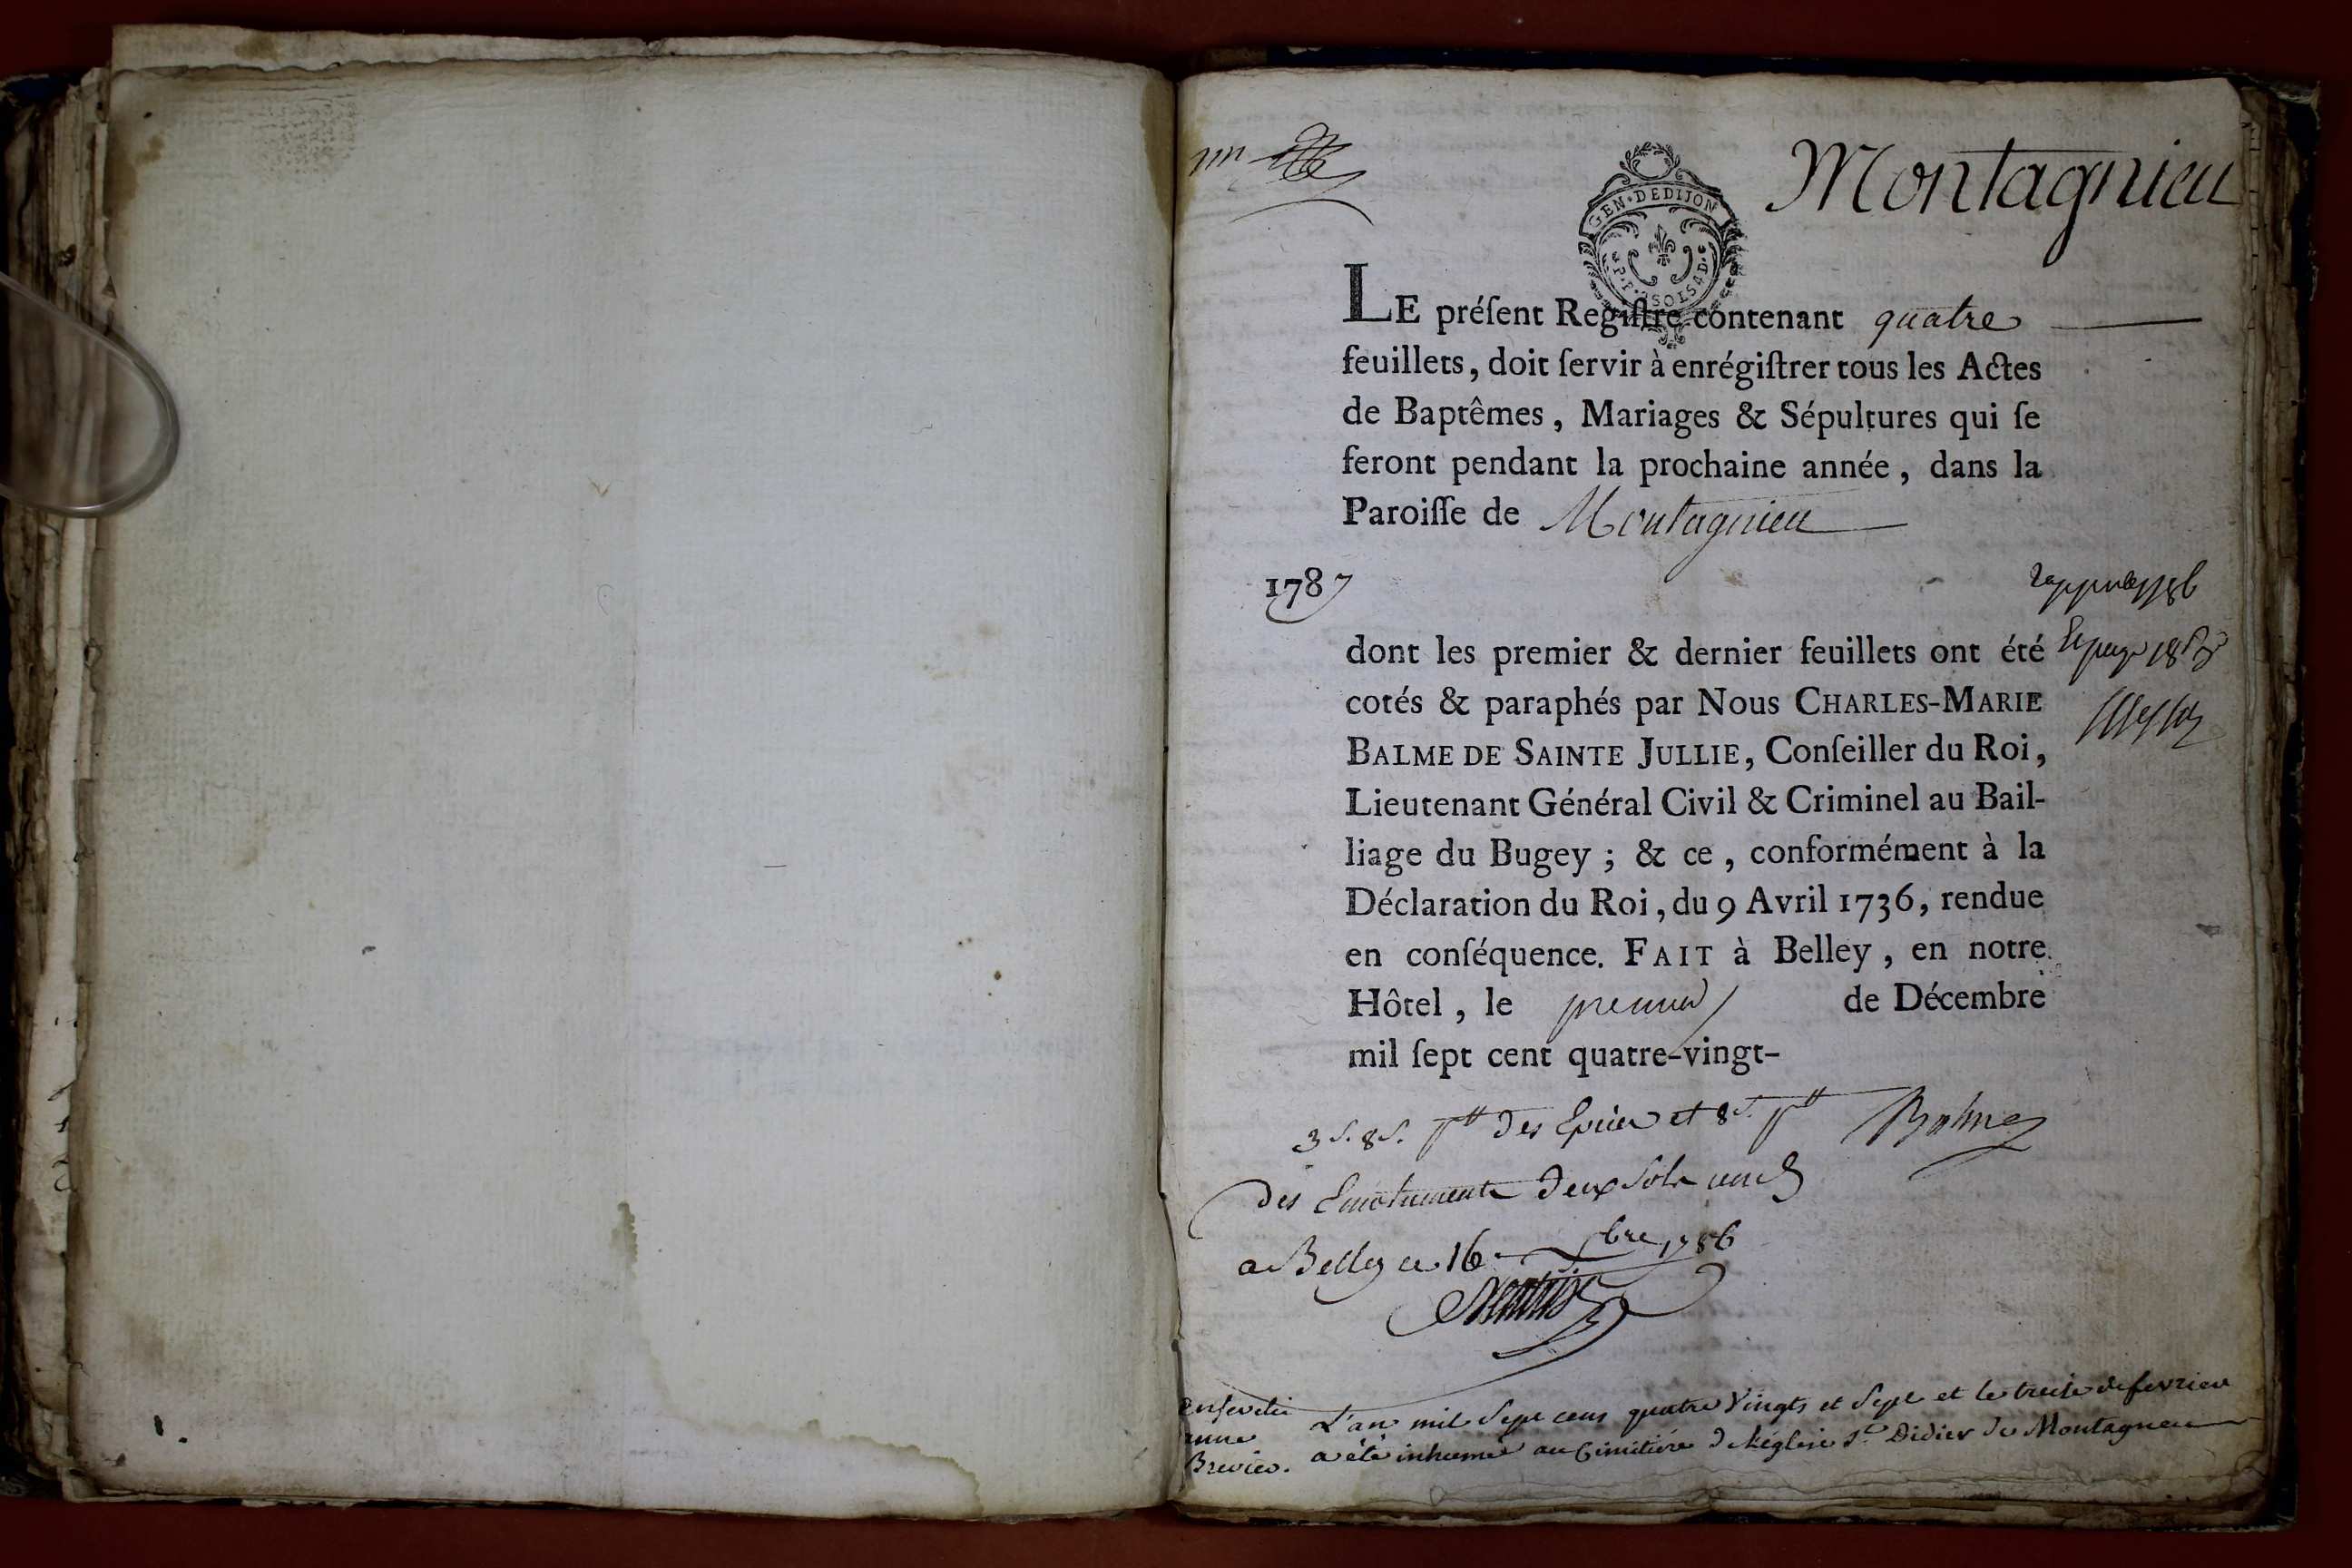 Montagnieu
GEN·DEDIJON
LE préſent Regiſtre contenant quatre
feuillets, doit ſervir à enrégiſtrer tous les Actes
de Baptêmes, Mariages & Sépultures qui ſe
feront pendant la prochaine année, dans la
Paroiſſe de Montagnieu
1787
dont les premier & dernier feuillets ont été
cotés & paraphés par Nous CHARLES-MARIE
BALME DE SAINTE JULLIE, Conſeiller du Roi,
Lieutenant Général Civil & Criminel au Bail-
liage du Bugey; & ce, conformément à la
Déclaration du Roi, du 9 Avril 1736, rendue
en conſéquence. FAIT à Belley, en notre
Hôtel, le premier de Décembre
mil ſept cent quatre-vingt-
3 s. 8 s. des Epices et 8 s. Balme
des Emoluments Deux Sols
a Belley ce 16 bre 1786
Enseveli
anne
Brevier.
L'an mil Sept cens quatre Vingts et Sept et le treize de fevrier
a été inhumé au Cimitiére de l'église st Didier de Montagneu